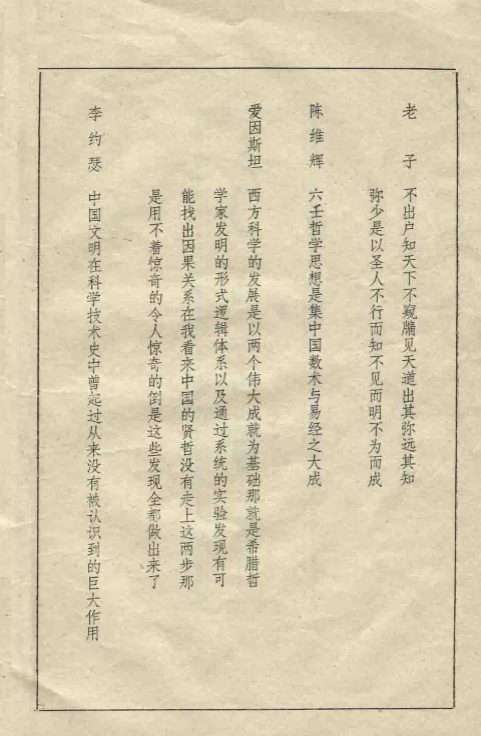 老子 不出户知天下不窥牖见天道出其弥远其知
弥少是以圣人不行而知不见而明不为而成
陈维辉 六壬哲学思想是集中国数术与易经之大成
爱因斯坦 西方科学的发展是以两个伟大成就为基础那就是希腊哲
学家发明的形式逻辑体系以及通过系统的实验发现有可
能找出因果关系在我看来中国的贤哲没有走上这两步那
是用不着惊奇的令人惊奇的倒是这些发现全都做出来了
李约瑟 中国文明在科学技术史中曾起过从来没有被认识到的巨大作用